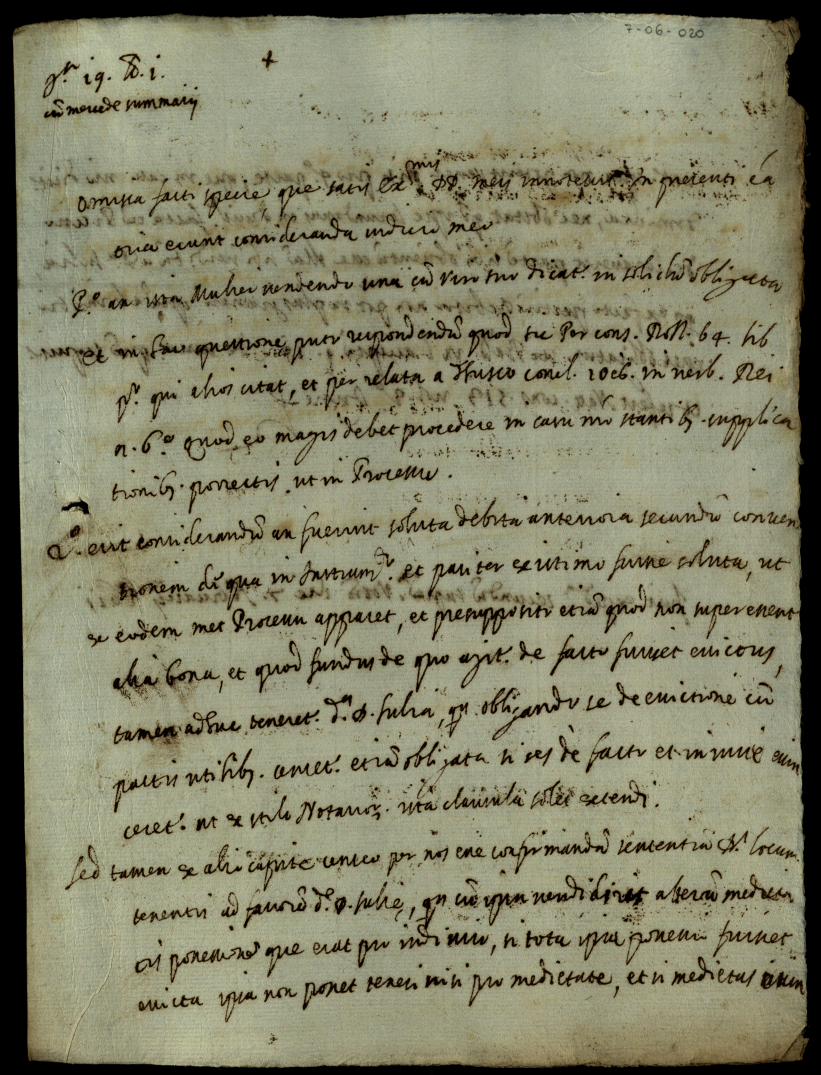 7-06-020
19.
cũ mercede summarij
Omissa facti specie, que satis Ex.mis DD. meis innotescit in presenti cã
tria erunt consideranda iudicio meo
P.º an ista Mulier vendendo una cũ viro suo dicat.r in solidũ obligata
et in hac questione puto respondendũ quod sic per cons. 64. lib
p.º qui alios citat, et per relata a concl. in verb. Rei
n. 6.º Quod eo magis debet procedere in casu nr̃o stantib. supplica
tionib. porrectis ut in Processu.
2.º erit considerandũ an fuerint soluta debita anteriora secundũ conven
tionem de qua in Instrum.to et pariter existimo fuisse soluta, ut
ex eodem met Processu apparet, et presupposito etiã quod non superessent
alia bona, et quod fundus de quo agit.r de facto fuisset evictus,
tamen adhuc teneret.r d.a D. Iulia, obligando se de evictione cũ
pactis utilib. censet.r etiã obligata si res de facto et in iure evin
ceret.r ut ex stilo Notarior. ista clausula solet extendi.
Sed tamen ex alio capite censeo per nos esse confirmandã sententiã D. Locum
tenentis ad favorẽ d.e D. Iulie, cũ ipsa vendiderit alterã medieta
tis possessionis que erat pro indiviso, si tota ipsa possessio fuisset
evicta ipsa non posset teneri nisi pro medietate, et si medietas